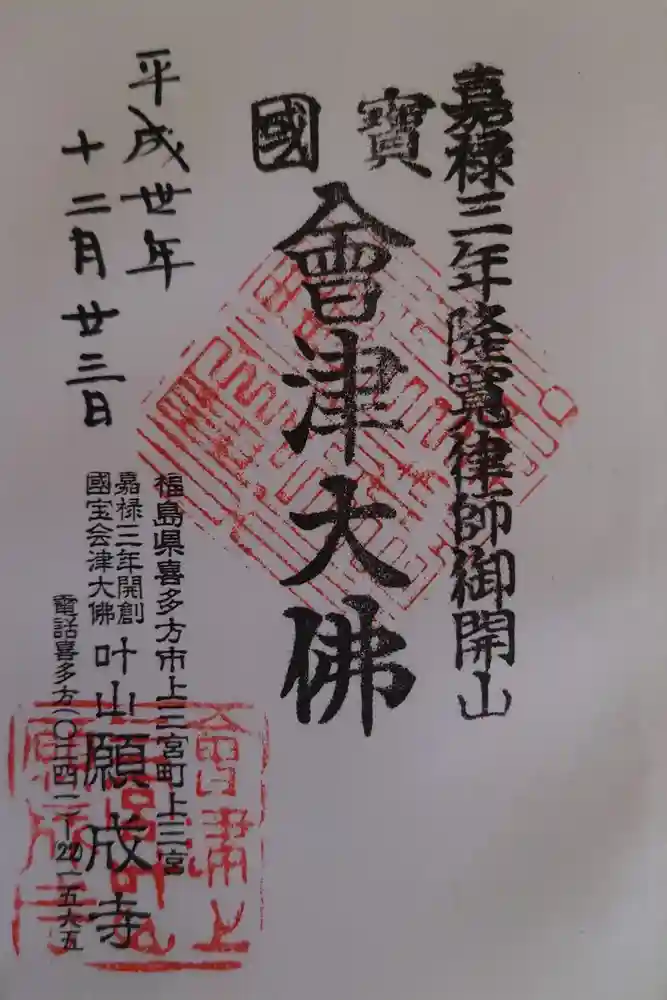 嘉禄三年隆寛律師御開山
寶國
會津大佛
平成丗年
十二月廿三日
福島県喜多方市上三宮町上三宮
嘉禄三年開創
國宝会津大佛
叶山願成寺
電話喜多方(〇二四一)